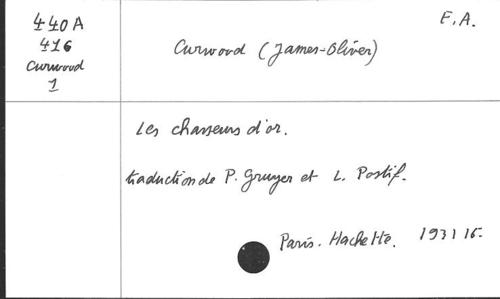 440A
416
Curwood
1
F.A.
Curwood (James-Oliver)
Les chasseurs d'or.
traduction de P. Gruyer et L. Postif.
Paris. Hachette. 1931